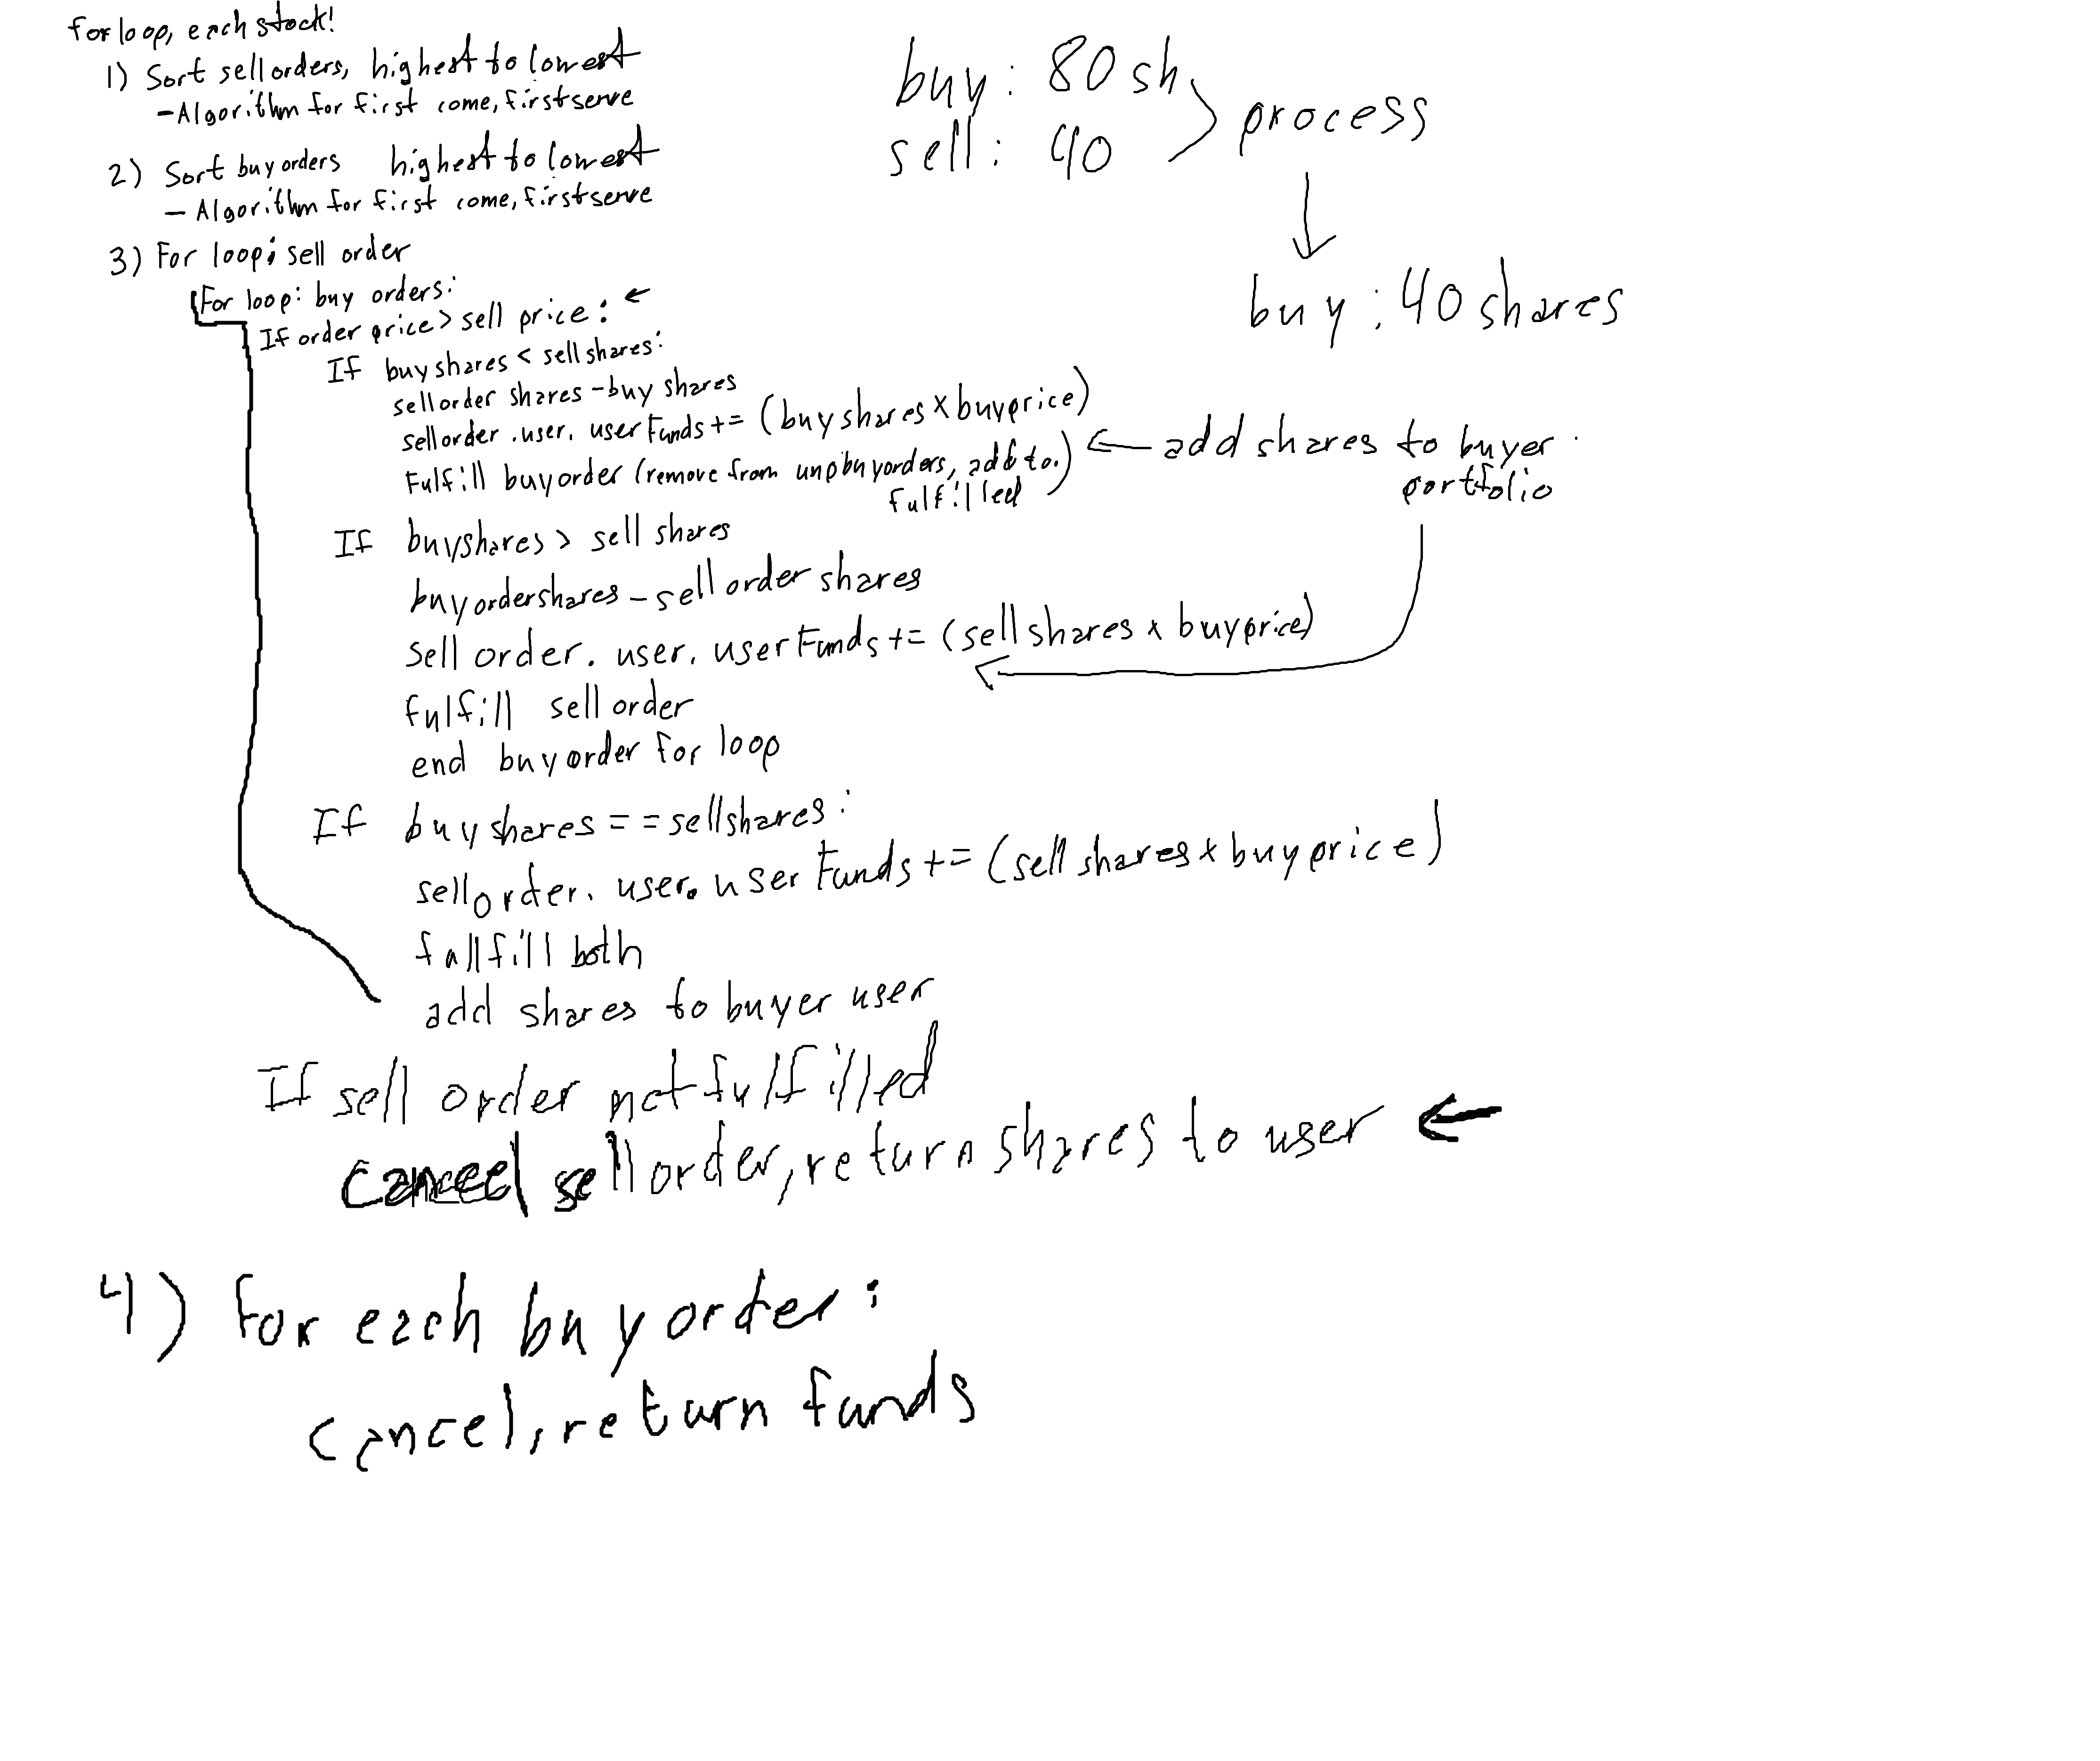 for loop, each stock!
1) Sort sell orders, highest to lowest
- Algorithm for first come, first serve
2) Sort buy orders highest to lowest
- Algorithm for first come, first serve
3) For loop: sell order
For loop: buy orders:
If order price > sell price: ←
If buy shares < sell shares:
sell order shares - buy shares
sell order .user. userFunds += (buy shares x buy price)
Fulfill buy order (remove from unpbuyorders, add to.)
fulfilled
← add shares to buyer
portfolio
If buy shares > sell shares
buy order shares - sell order shares
sell order. user. userFunds += (sell shares x buy price)
fulfill sell order
end buy order for loop
If buy shares == sell shares:
sell order. user. userFunds += (sell shares x buy price)
fullfill both
add shares to buyer user
If sell order not fulfilled
cancel sell order, return shares to user ←
4) For each buy order:
cancel, return funds
buy: 80 sh
sell: 40
process
buy: 40 shares